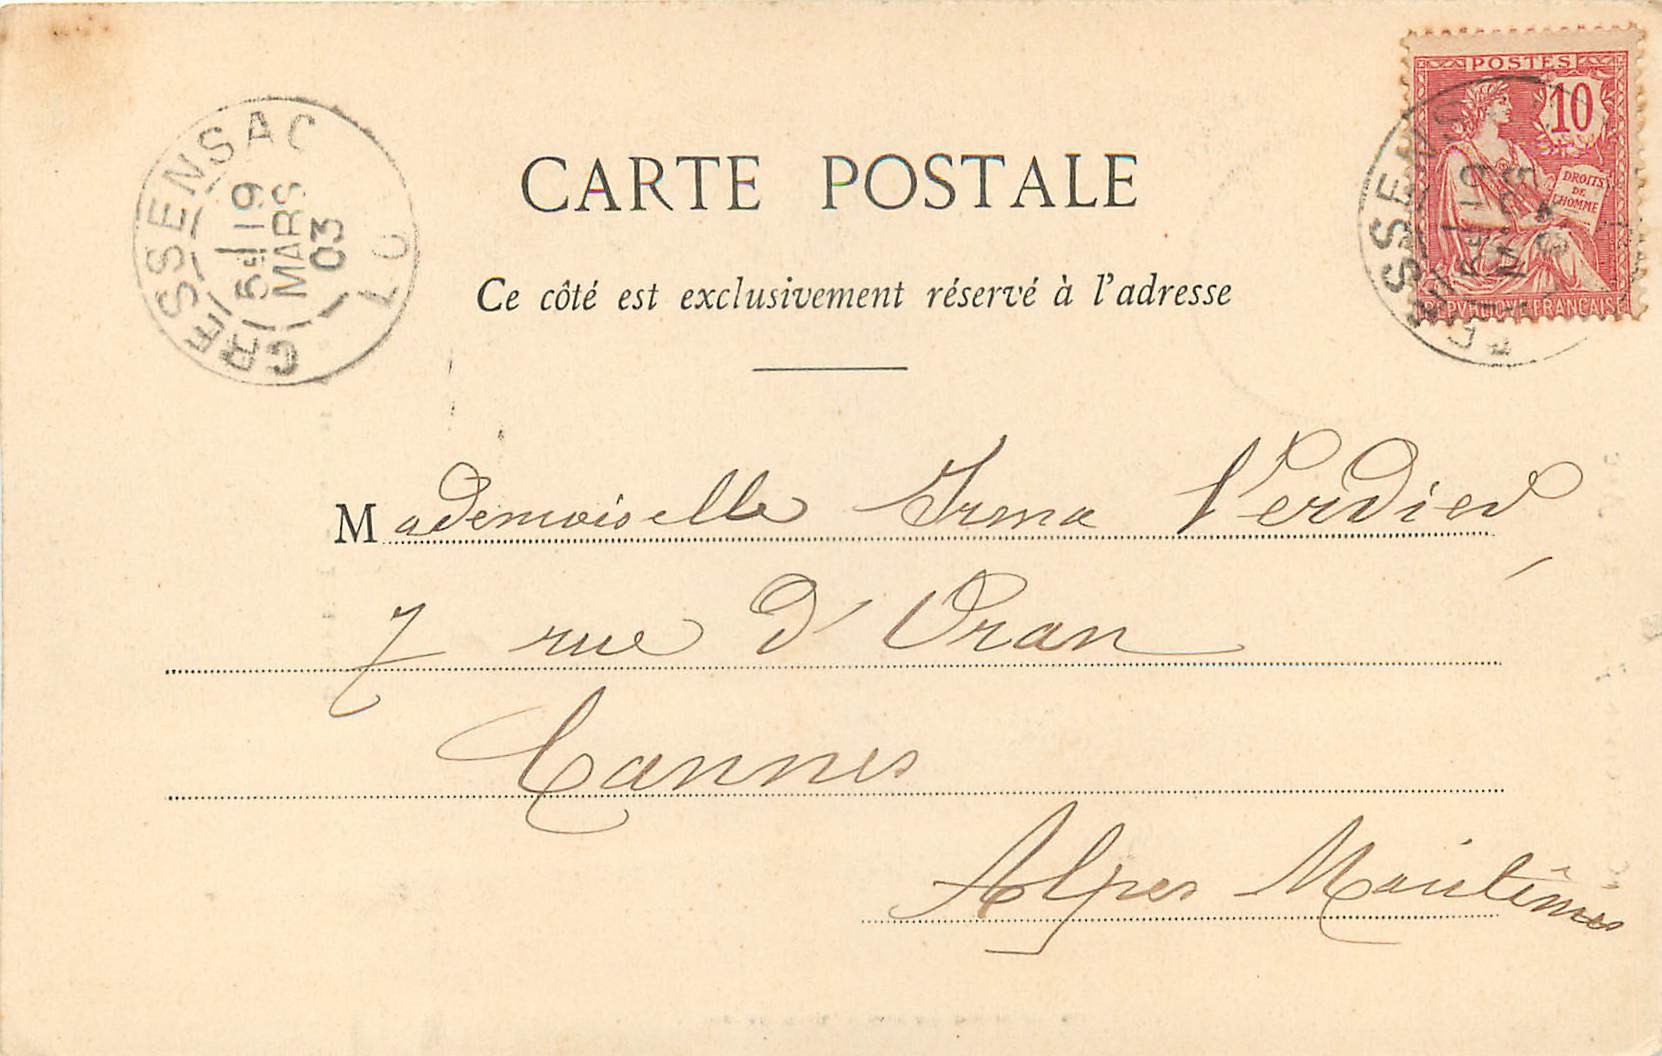 POSTES
10
DROITS
DE
L'HOMME
REPVBLIQVE FRANÇAISE
CRESSENSAC
LOT
5E 19
MARS
03
CARTE POSTALE
Ce côté est exclusivement réservé à l'adresse
Mademoiselle Irma Verdier
7 rue d'Oran
Cannes
Alpes Maritimes